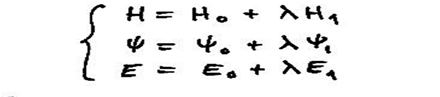 H = H₀ + λH₁
ψ = ψ₀ + λψ₁
E = E₀ + λE₁